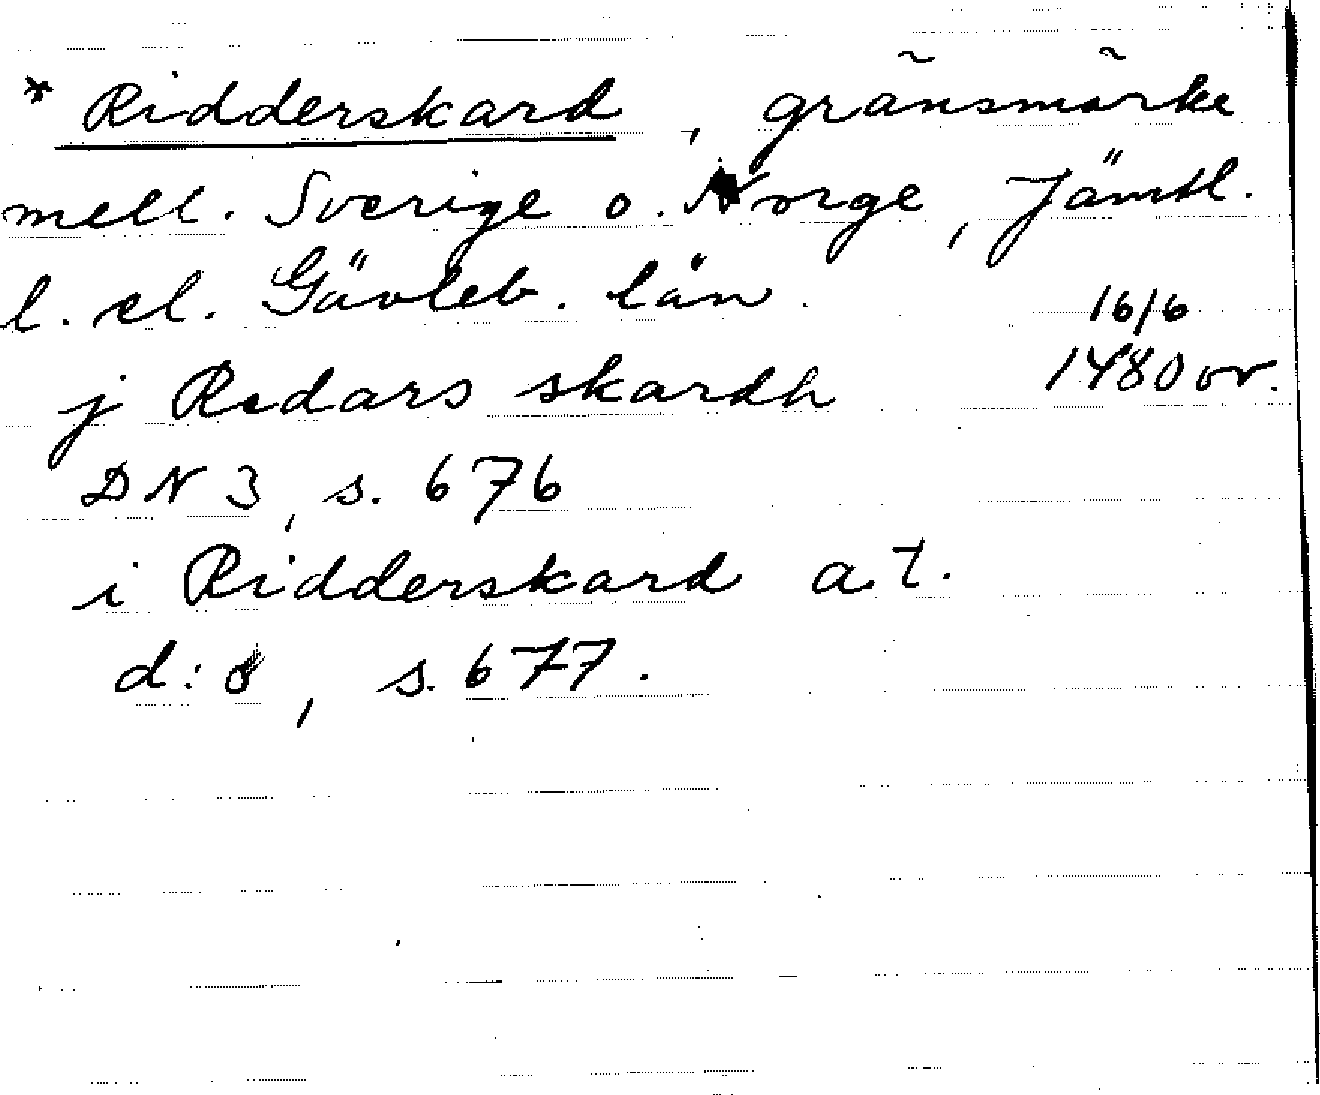 * Ridderskard, gränsmärke
mell. Sverige o. Norge, Jämtl.
l. el. Gävleb. län.
16/6
j Redars skardh 1480 or.
DN 3, s. 676
i Ridderskard a.t.
d:o, s. 677.